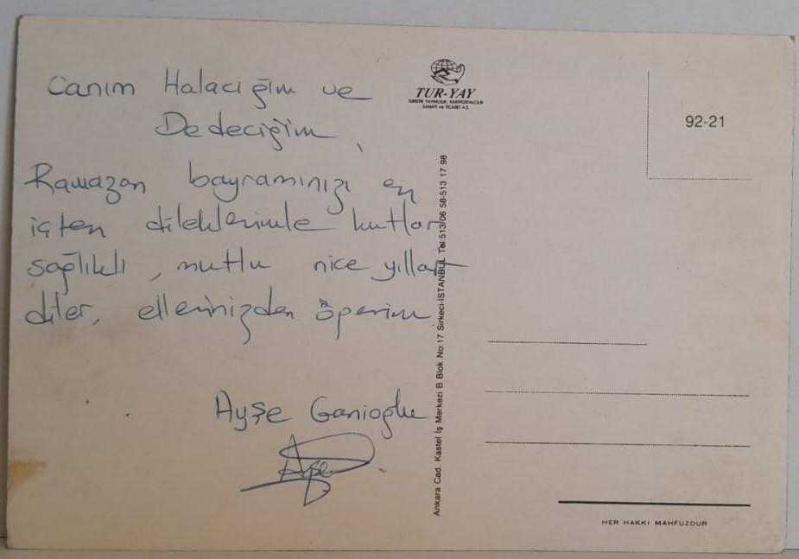 Canım Halacığım ve
Dedeciğim,
Ramazan bayramınızı en
içten dileklerimle kutlar
sağlıklı, mutlu nice yıllar
diler, ellerinizden öperim
Ayşe Ganioğlu
Ayşe
TUR-YAY
SANAYİ ve TİCARET A.Ş.
92-21
Ankara Cad. Kastel İş Merkezi B Blok No:17 Sirkeci-İSTANBUL Tel:513 06 58-513 17 98
HER HAKKI MAHFUZDUR